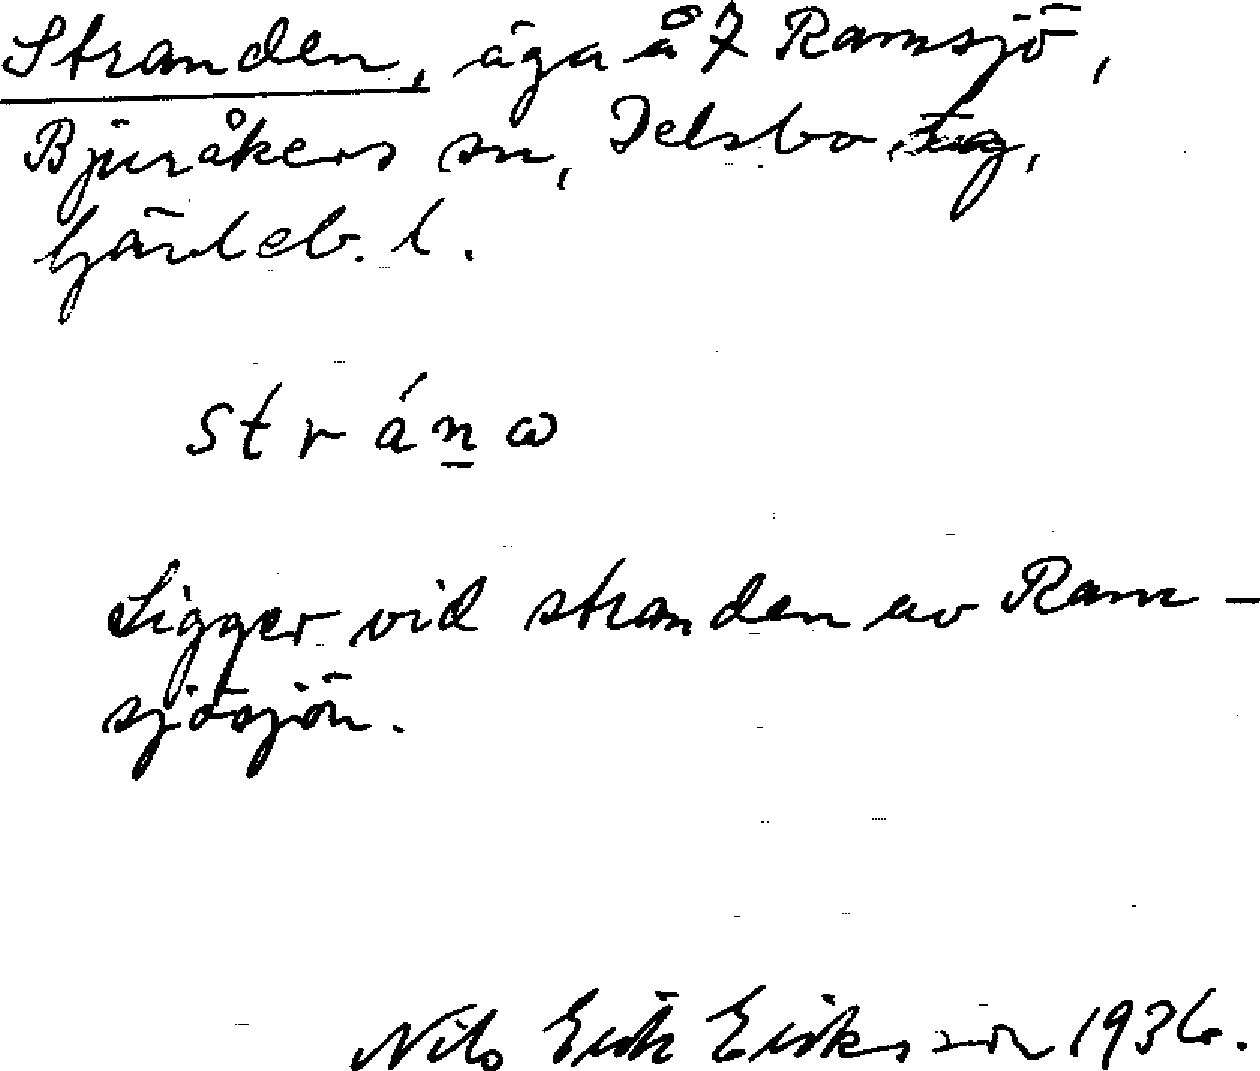 Stranden, äga å 7 Ramsjö,
Bjuråkers sn, Delsbo tsg,
Gävleb. l.
stránω
Ligger vid stranden av Ram-
sjösjön.
Nils Erik Eriksson 1936.